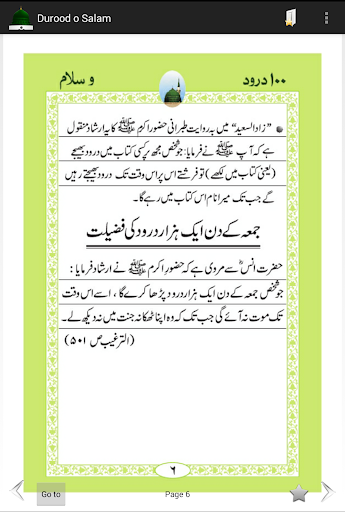 Durood o Salam
۱۰۰ درود و سلام
"زاد السعید" میں بہ روایت طبرانی حضور اکرم ﷺ کا یہ ارشاد منقول
ہے کہ آپ ﷺ نے فرمایا: جو شخص مجھ پر کسی کتاب میں درود بھیجے
(یعنی کتاب میں لکھے) تو فرشتے اس پر اس وقت تک درود بھیجتے رہیں
گے جب تک میرا نام اس کتاب میں رہے گا۔
جمعہ کے دن ایک ہزار درود کی فضیلت
حضرت انسؓ سے مروی ہے کہ حضور اکرم ﷺ نے ارشاد فرمایا:
جو شخص جمعہ کے دن ایک ہزار درود پڑھا کرے گا، اسے اس وقت
تک موت نہ آئے گی جب تک کہ وہ اپنا ٹھکانہ جنت میں نہ دیکھ لے۔
(الترغیب ص ۵۰۱)
۶
Go to
Page 6